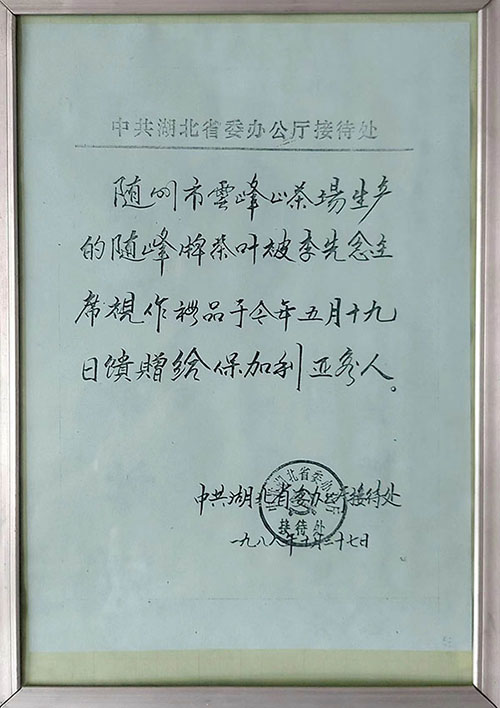 中共湖北省委办公厅接待处
随州市雲峰山茶場生产
的随峰牌茶叶被李先念主
席視作礼品于今年五月十九
日馈赠给保加利亚客人。
中共湖北省委办公厅接待处
接待处
一九八八年十月二十七日